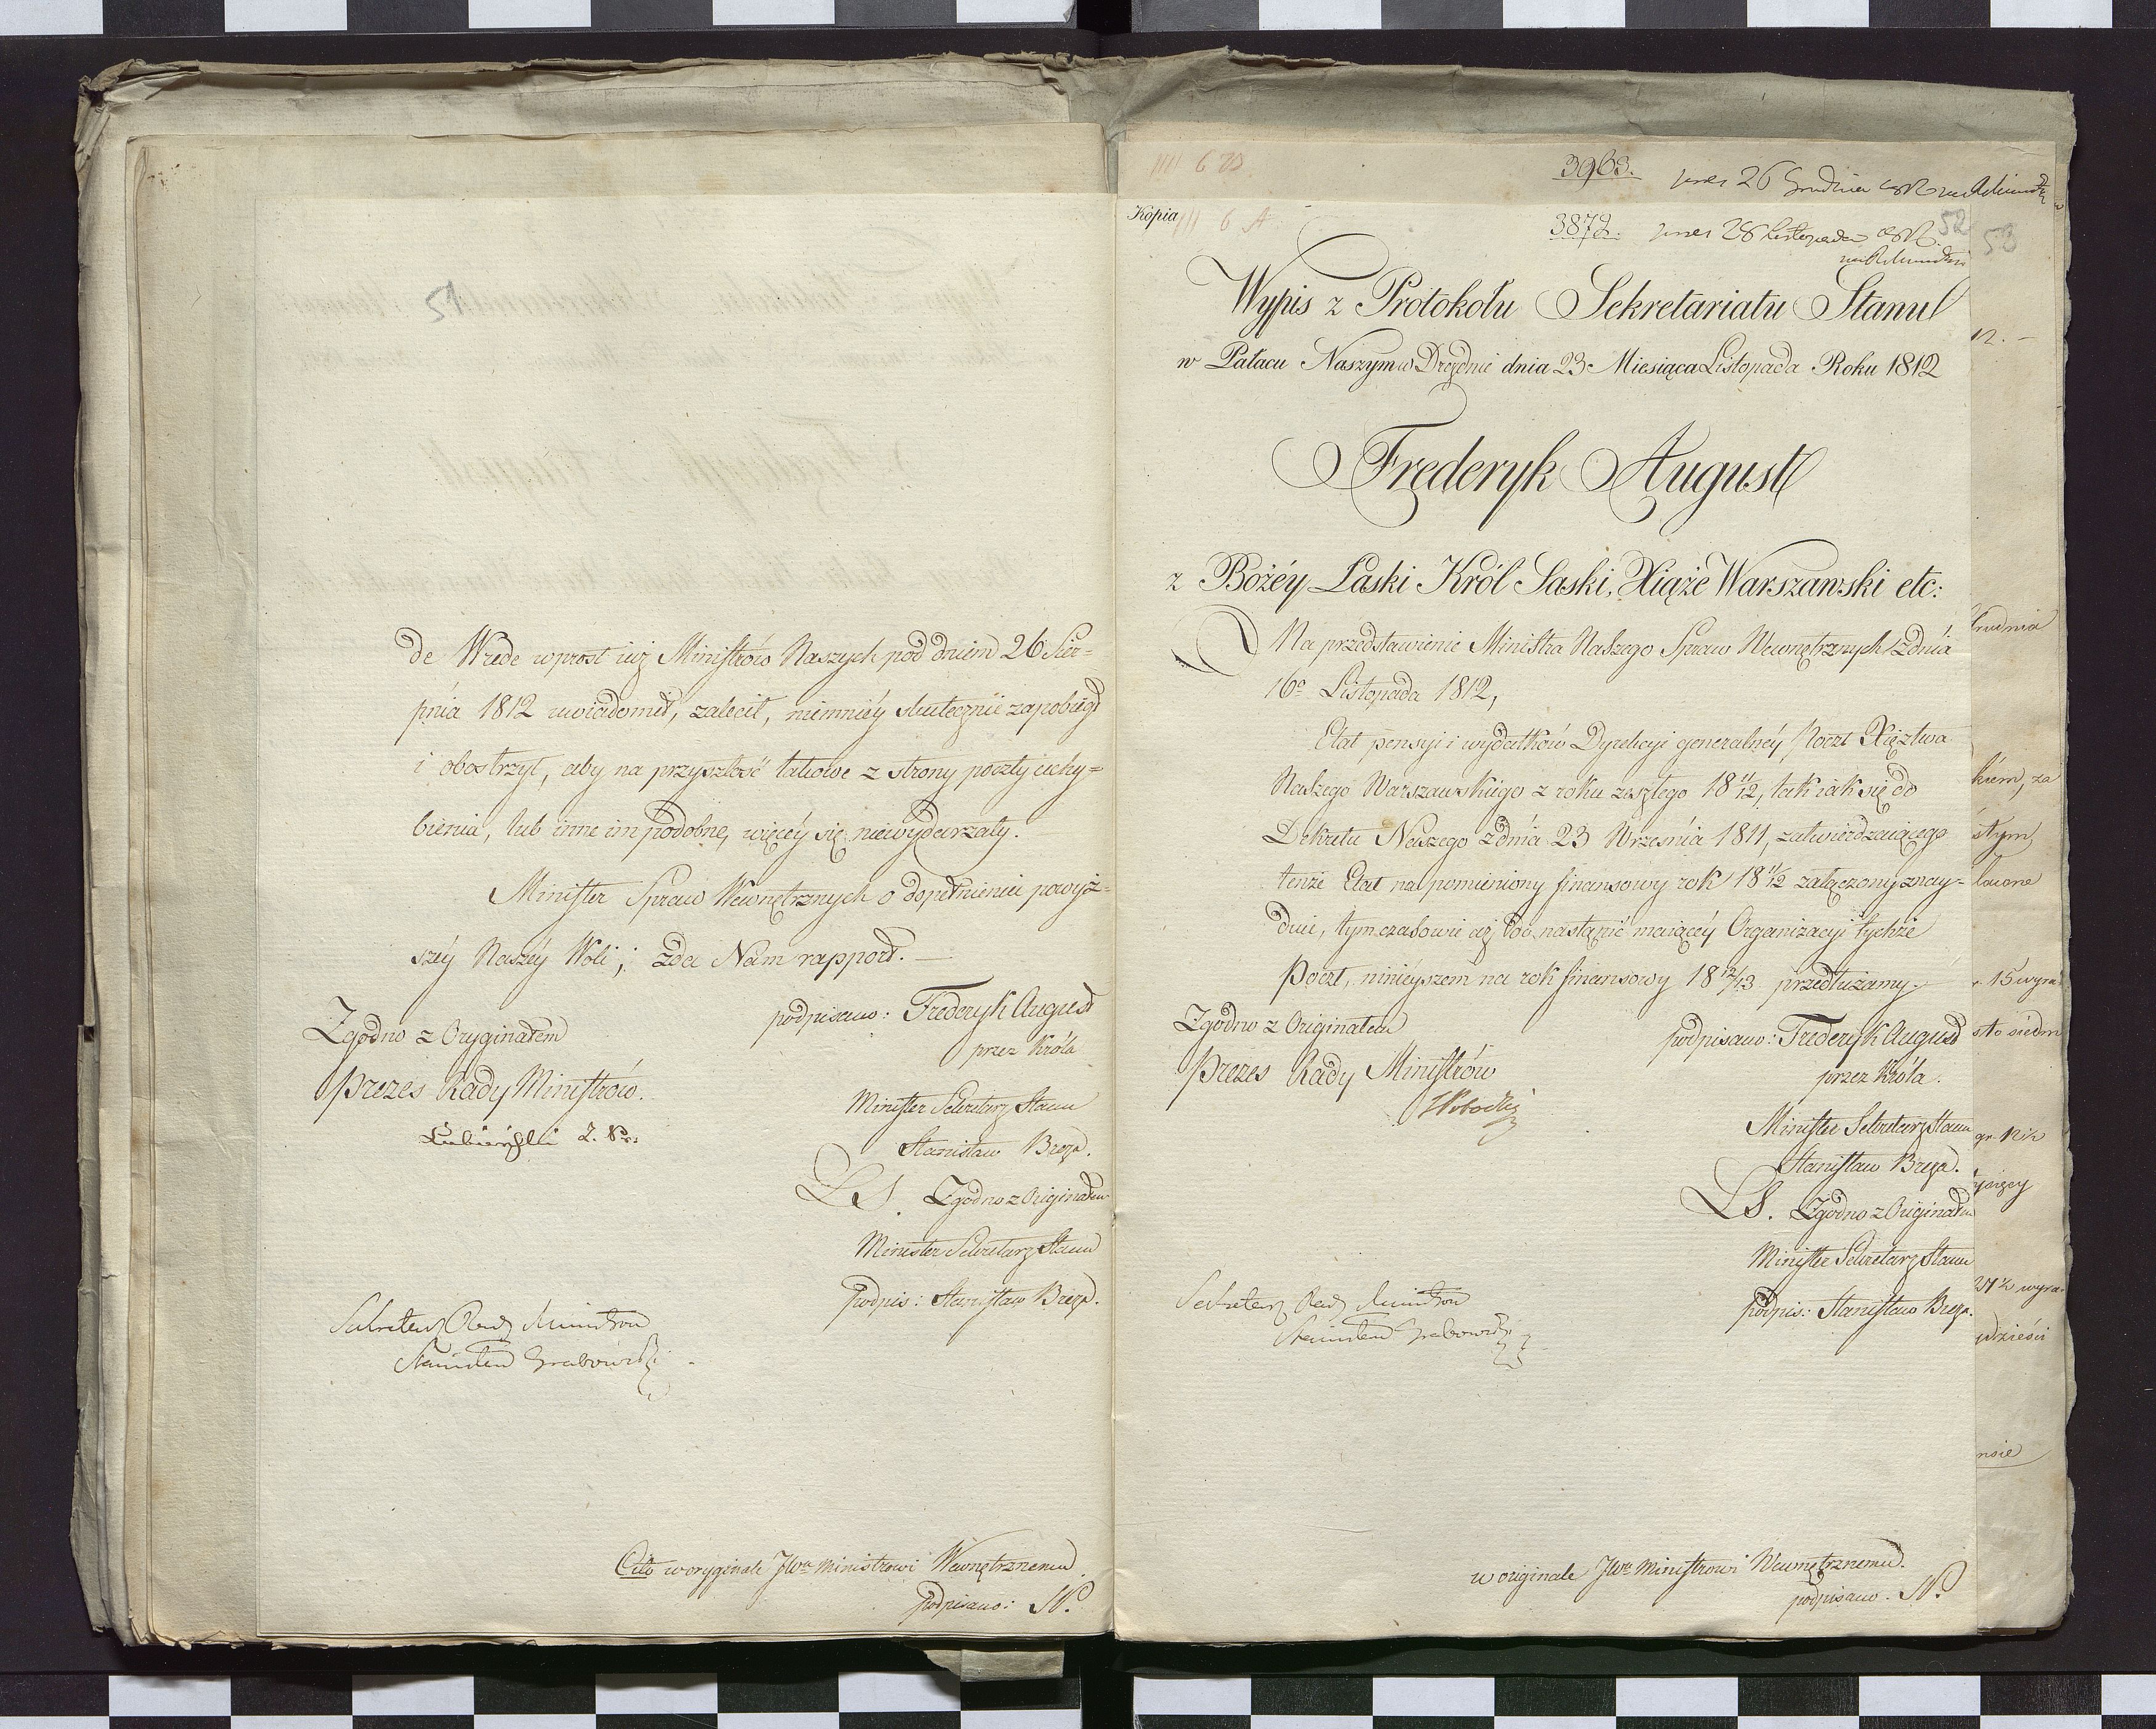 51
de Wrede wprost iuż Ministrów Naszych pod dniem 26 Sier-
pnia 1812 uwiadomił, zalecił, niemniéy skutecznie zapobiegł
i obostrzył, aby na przyszłość takowe z strony poczty uchy-
bienia, lub inne im podobne, więcéy się niewydarzały.
Minister Spraw Wewnętrznych o dopełnieniu powyż-
széy Naszéy Woli, zda Nam rapport.
podpisano: Frederyk August
przez Króla
Minister Sekretarz Stanu
Stanisław Breza.
LS. Zgodno z Originałem
Minister Sekretarz Stanu
podpis: Stanisław Breza.
Zgodno z Oryginałem
Prezes Rady Ministrów.
Łubieński
Sekretarz Rady Ministrow
Stanisław Grabowski
Cito w oryginale JWu Ministrowi Wewnętrznemu.
podpisano: N.
3963. pres 26 Grudnia
Kopia
3872. pres 28 Listopada
52
53
Wypis z Protokołu Sekretariatu Stanu
w Pałacu Naszym w Dreźnie dnia 23 Miesiąca Listopada Roku 1812
Frederyk August
z Bożéy Łaski Król Saski, Xiąże Warszawski etc:
Na przedstawienie Ministra Naszego Spraw Wewnętrznych z dnia
16o Listopada 1812,
Etat pensyi i wydatków Dyrekcyi generalnéy Poczt Xięztwa
Naszego Warszawskiego z roku zeszłego 18 11/12, tak iak się do
Dekretu Naszego z dnia 23 Września 1811, zatwierdzaiącego
tenże Etat na pomieniony finansowy rok 18 11/12 załączony znay-
duie, tymczasowie aż do nastąpić maiącéy Organizacyi tychże
Poczt, ninieyszem na rok finansowy 18 12/13 przedłużamy.
podpisano: Frederyk August
przez Króla.
Minister Sekretarz Stanu
Stanisław Breza.
LS. Zgodno z Originałem
Minister Sekretarz Stanu
podpis: Stanisław Breza.
Zgodno z Originałem
Prezes Rady Ministrów
Sekretarz Rady Ministrow
Stanisław Grabowski
w originale JWu Ministrowi Wewnętrznemu.
podpisano. N.
12. —
Grudnia
kiem, za
stym
lowone
15 wyra
sto siedm
dzieści